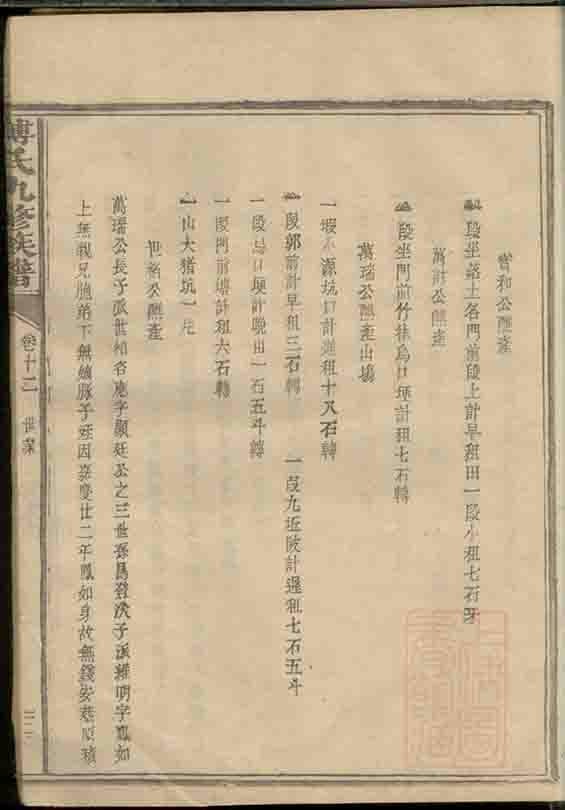 實和公醮產
一段坐落土名門前段上計早租田一段小租七石牙
萬計公醮產
一段坐門前竹林烏口埂計租七石轉
萬瑞公醮產山塲
一塅小源坑口計遲租十又石轉
一段郭前計早租三石轉 一段九近陂計遲租七石五斗
一段烏口埂計晚田一石五斗轉
一段門前塘計租六石轉
一山大猪坑一片
世 公醮產
萬瑞公長子派世相名應字顯廷公之三世孫昌 次子派耀明字鳳如
上無親兄胞弟下無嫡脉子姪因嘉慶廿二年鳳如身故無錢安葬 積
傅氏九修族譜
卷十二 世業
上海圖書館藏